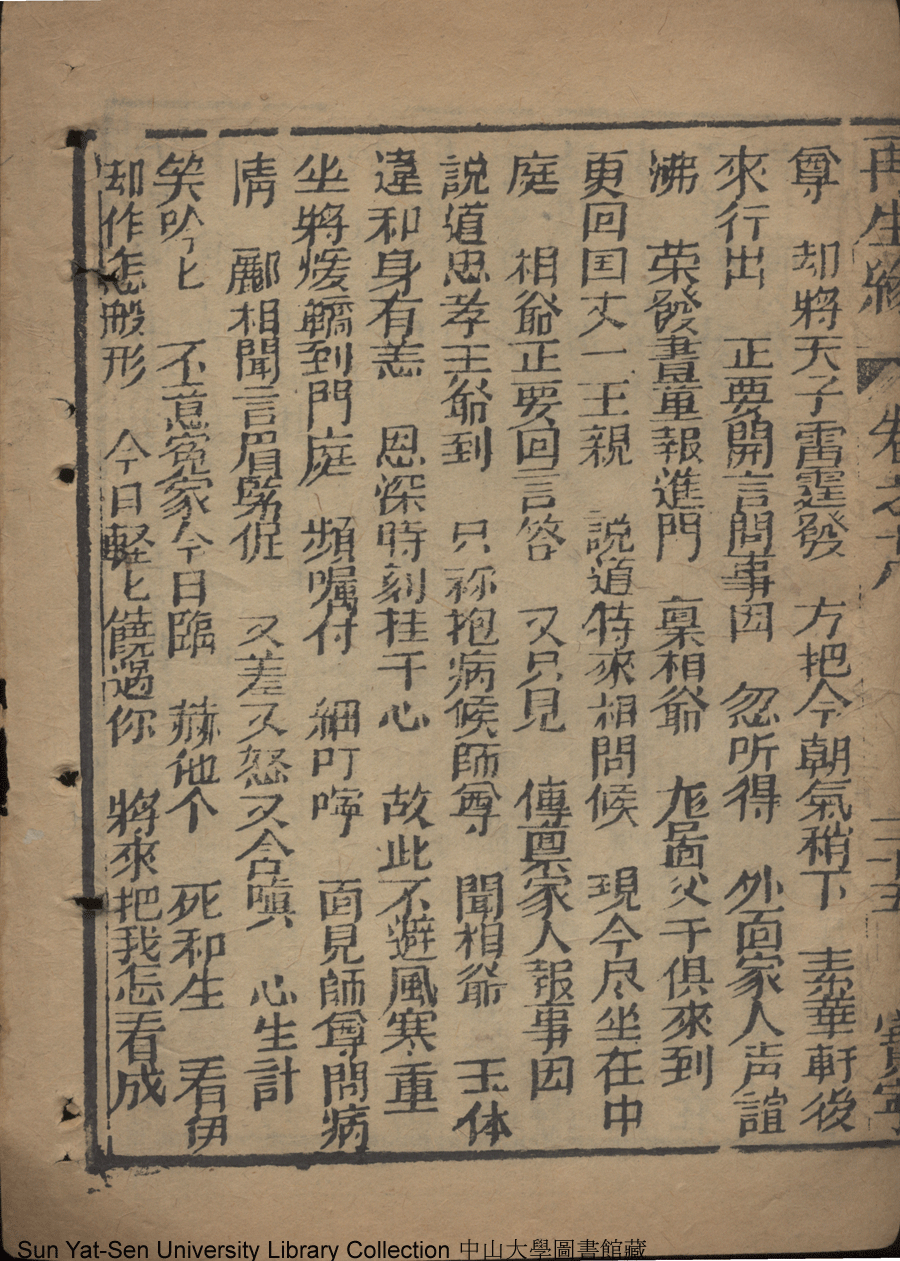 再生緣 卷之十八 三十五
尊 却將天子雷霆發 方把今朝氣稍下 素華軒後
來行出 正要開言問事因 忽所得 外面家人声誼
沸 荣發書童報進門 禀相爺 龙啚父子俱來到
更回国丈一王親 說道特來相問候 現今尽坐在中
庭 相爺正要回言答 又只見 傳禀家人報事因
說道思孝王爺到 只称抱病候師尊 聞相爺 玉体
違和身有恙 恩深時刻挂于心 故此不避風寒重
坐將煖轎到門庭 頻囑付 細叮嚀 面見師尊問病
情 酈相聞言眉緊促 又差又怒又含嗔 心生計
笑吟匕 不意寃家今日臨 赫他个 死和生 看伊
却作怎般形 今日輕匕饒過你 將來把我怎看成
Sun Yat-Sen University Library Collection 中山大學圖書館藏